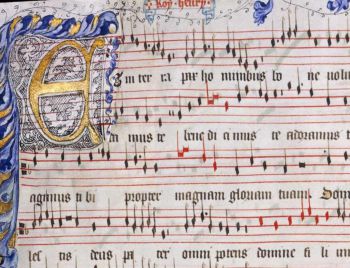 Roy. henry.
E in ter ra par ho minibus bo ne volu
di mus te bene di a mus te adoramus t
agimus ti bi propter magnam gloriam tuam. Dom
les tis deus pa ter omni potens domine fi li